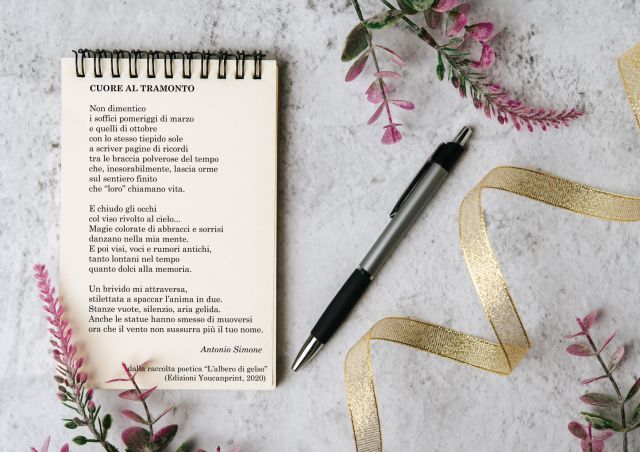 CUORE AL TRAMONTO
Non dimentico
i soffici pomeriggi di marzo
e quelli di ottobre
con lo stesso tiepido sole
a scriver pagine di ricordi
tra le braccia polverose del tempo
che, inesorabilmente, lascia orme
sul sentiero finito
che “loro” chiamano vita.
E chiudo gli occhi
col viso rivolto al cielo...
Magie colorate di abbracci e sorrisi
danzano nella mia mente.
E poi visi, voci e rumori antichi,
tanto lontani nel tempo
quanto dolci alla memoria.
Un brivido mi attraversa,
stilettata a spaccar l'anima in due.
Stanze vuote, silenzio, aria gelida.
Anche le statue hanno smesso di muoversi
ora che il vento non sussurra più il tuo nome.
Antonio Simone
dalla raccolta poetica “L'albero di gelso”
(Edizioni Youcanprint, 2020)